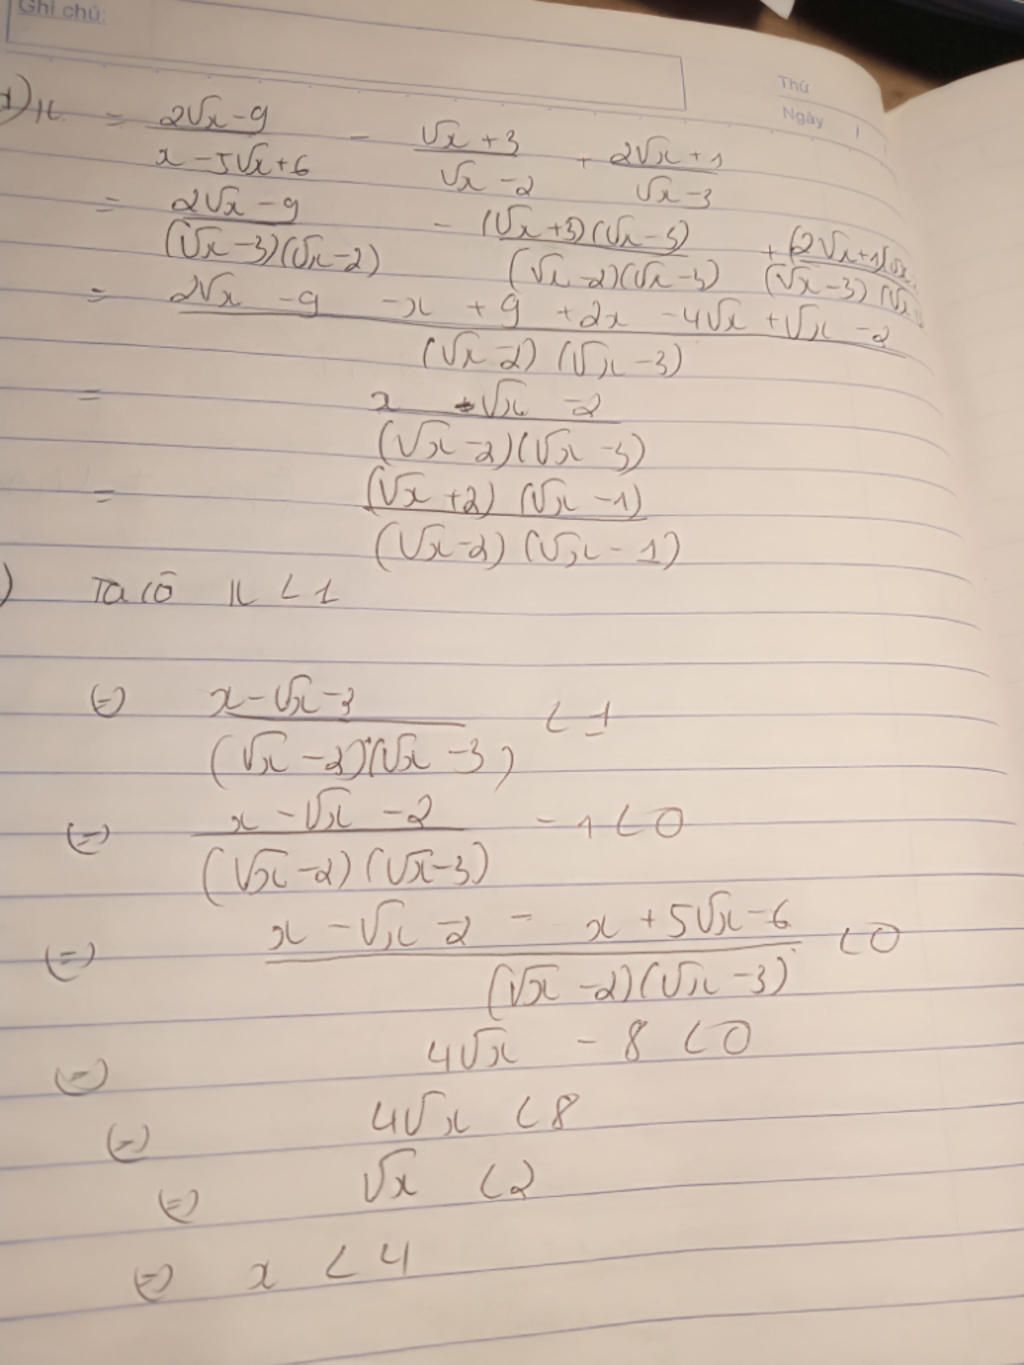 Ghi chú:
Thứ
Ngày /
1) K = (2√x - 9)/(x - 5√x + 6) - (√x + 3)/(√x - 2) + (2√x + 1)/(√x - 3)
= (2√x - 9)/((√x - 3)(√x - 2)) - ((√x + 3)(√x - 3))/((√x - 2)(√x - 3)) + ((2√x + 1)(√x/((√x - 3)(√x
= (2√x - 9 - x + 9 + 2x - 4√x + √x - 2)/((√x - 2)(√x - 3))
= (x - √x - 2)/((√x - 2)(√x - 3))
= ((√x + 2)(√x - 1))/((√x - 2)(√x - 1))
) Ta có K < 1
(=) (x - √x - 3)/((√x - 2)(√x - 3)) < 1
(=) (x - √x - 2)/((√x - 2)(√x - 3)) - 1 < 0
(=) (x - √x - 2 - x + 5√x - 6)/((√x - 2)(√x - 3)) < 0
(=) 4√x - 8 < 0
(=) 4√x < 8
(=) √x < 2
(=) x < 4